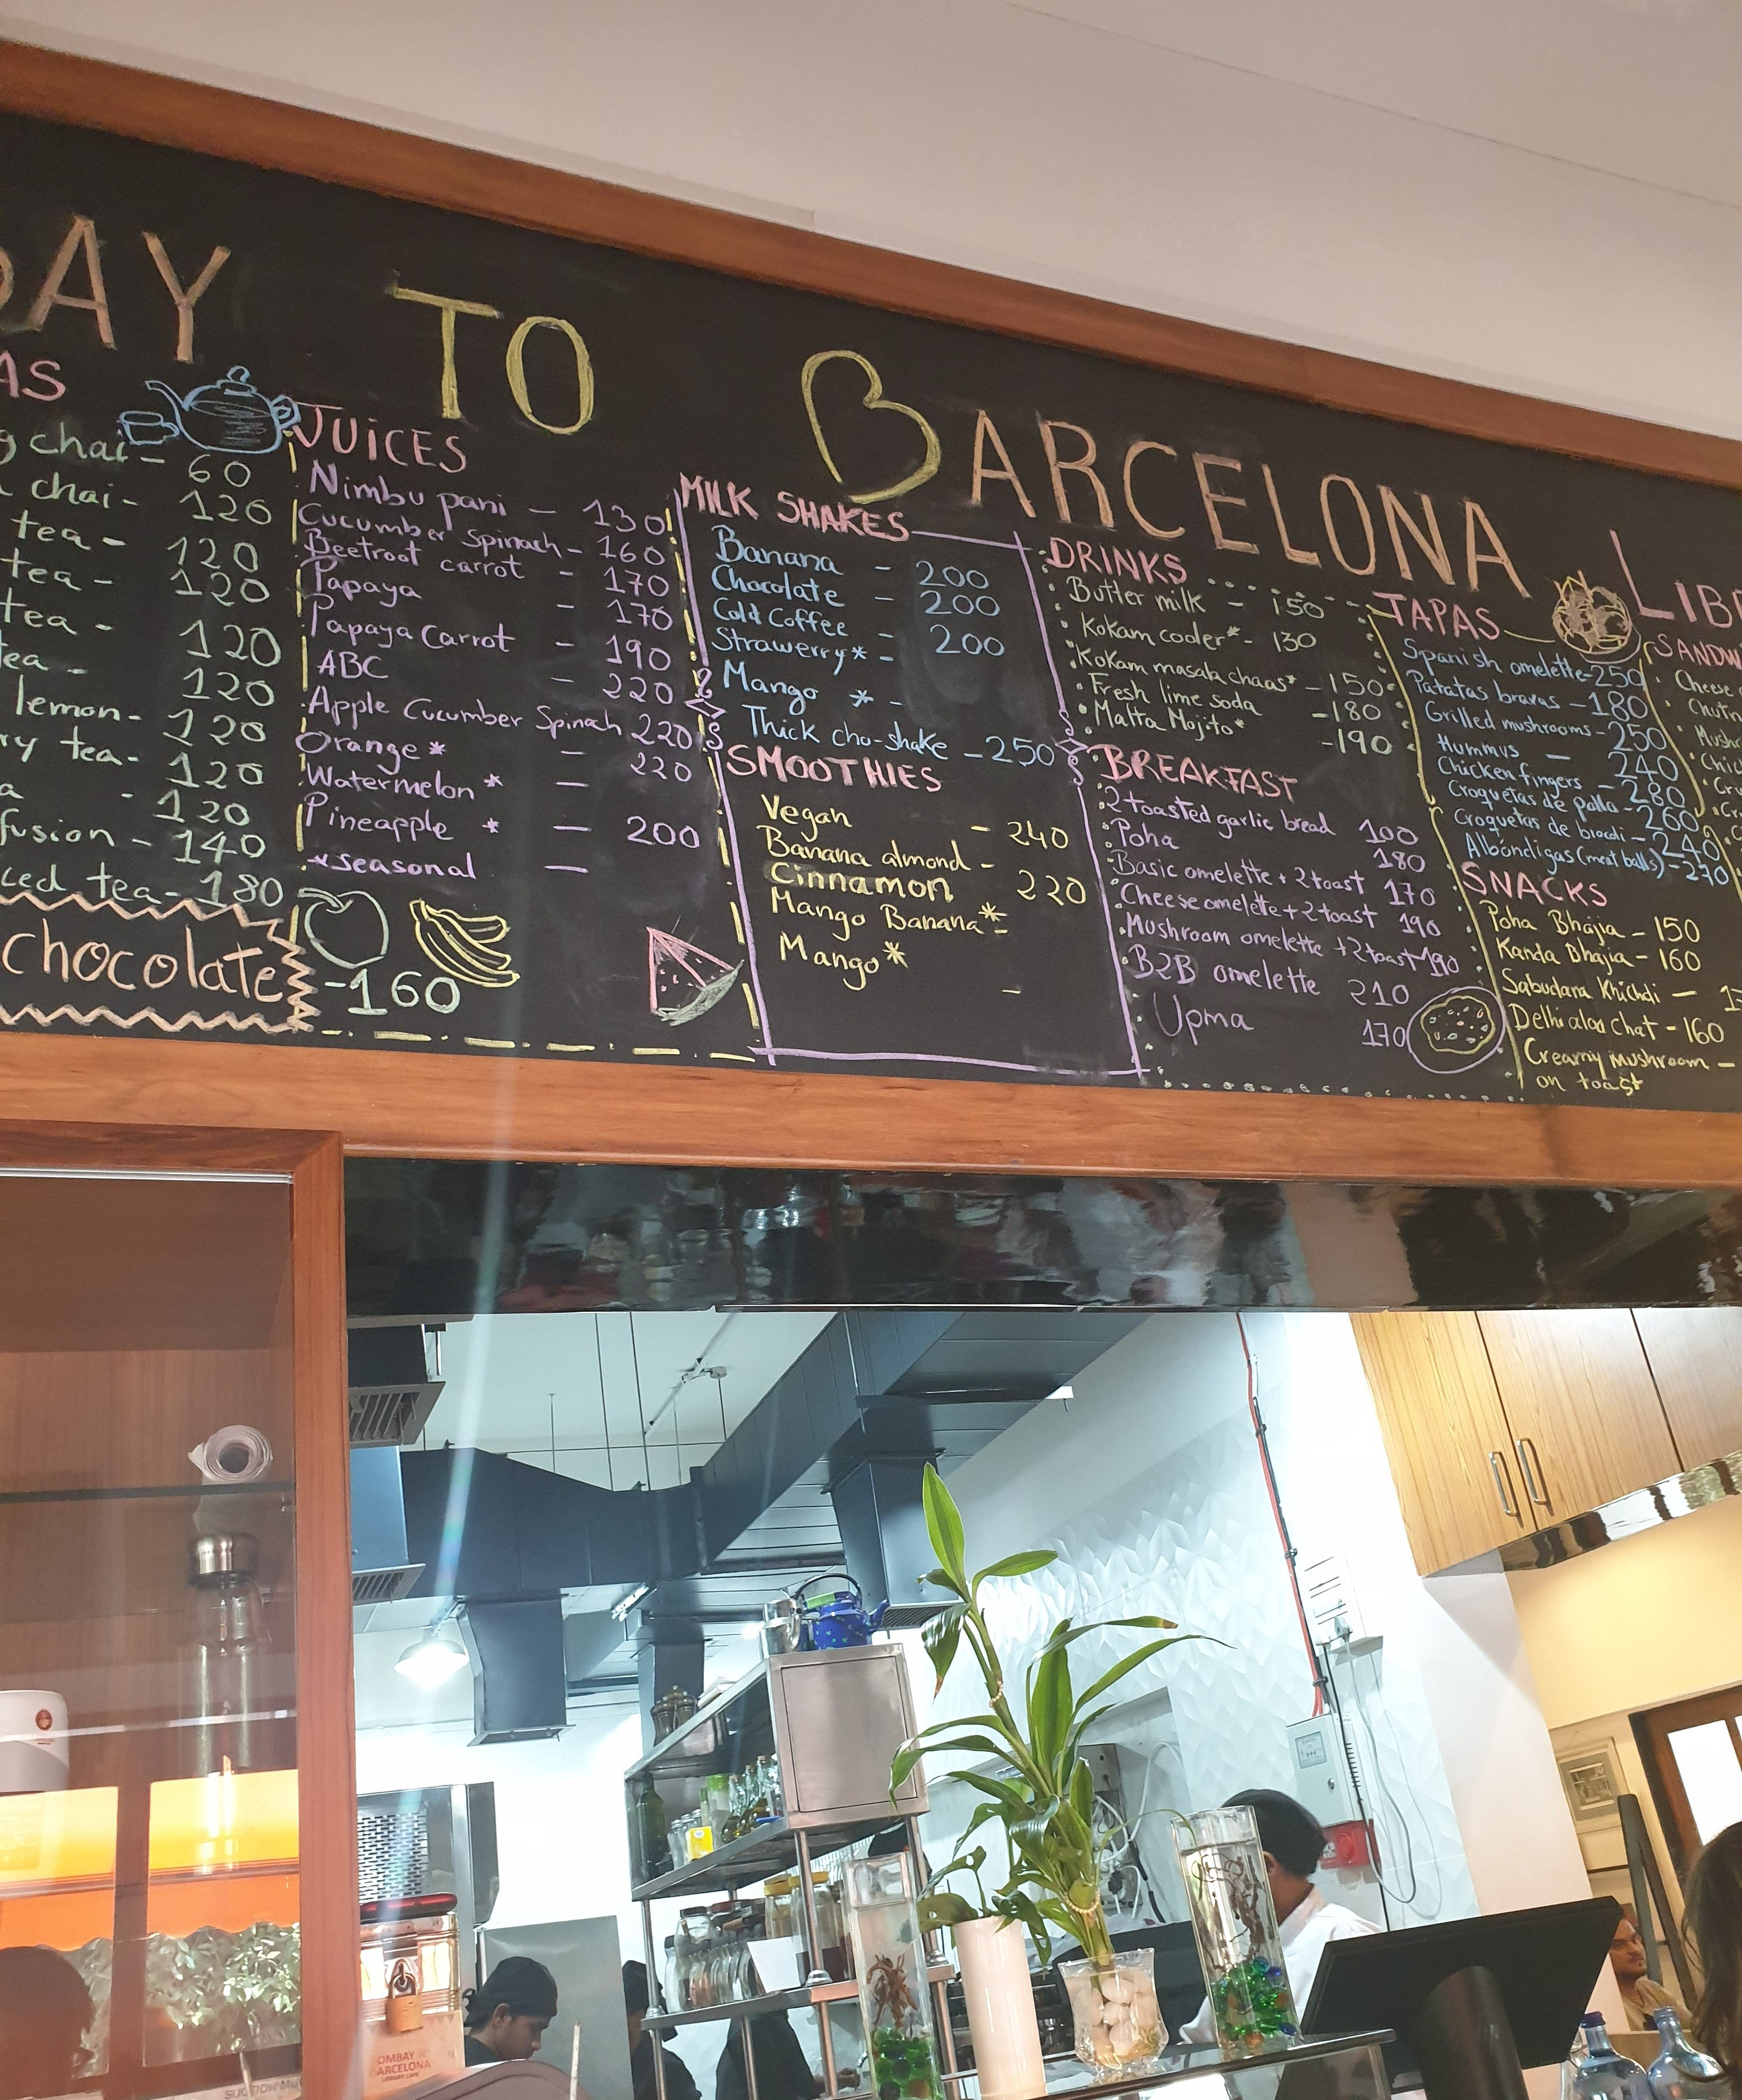 DAY TO BARCELONA LIB
AS
g chai - 60
chai - 120
tea - 120
tea - 120
tea - 120
tea - 120
lemon - 120
ry tea - 120
a - 120
fusion - 140
ced tea - 180
chocolate - 160
JUICES
Nimbu pani - 130
Cucumber Spinach - 160
Beetroot carrot - 170
Papaya - 170
Papaya Carrot - 190
ABC - 220
Apple Cucumber Spinach 220
Orange* - 220
Watermelon* -
Pineapple * - 200
*seasonal -
MILK SHAKES
Banana - 200
Chocolate - 200
Cold Coffee - 200
Strawerry* -
Mango * -
Thick cho-shake - 250
SMOOTHIES
Vegan - 240
Banana almond -
Cinnamon 220
Mango Banana* -
Mango* -
DRINKS
Butter milk - 150
Kokam cooler* - 130
Kokam masala chaas* - 150
Fresh lime soda - 180
Malta Mojito* - 190
BREAKFAST
2 toasted garlic bread 100
Poha 180
Basic omelette + 2 toast 170
Cheese omelette + 2 toast 190
Mushroom omelette + 2 toast 190
B2B omelette 210
Upma 170
TAPAS
Spanish omelette - 250
Patatas bravas - 180
Grilled mushrooms - 250
Hummus - 240
Chicken fingers - 280
Croquetas de pollo - 260
Croquetas de brocoli - 240
Albóndigas (meat balls) - 270
SNACKS
Poha Bhajia - 150
Kanda Bhajia - 160
Sabudana Khichdi -
Delhi aloo Chat - 160
Creamy Mushroom -
on toast
SANDW
Cheese
Chutn
Mushr
Chic
OMBAY
ARCELONA
LIBRARY CAFE